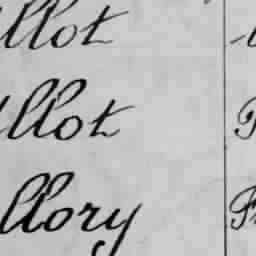 llot
llot
llory